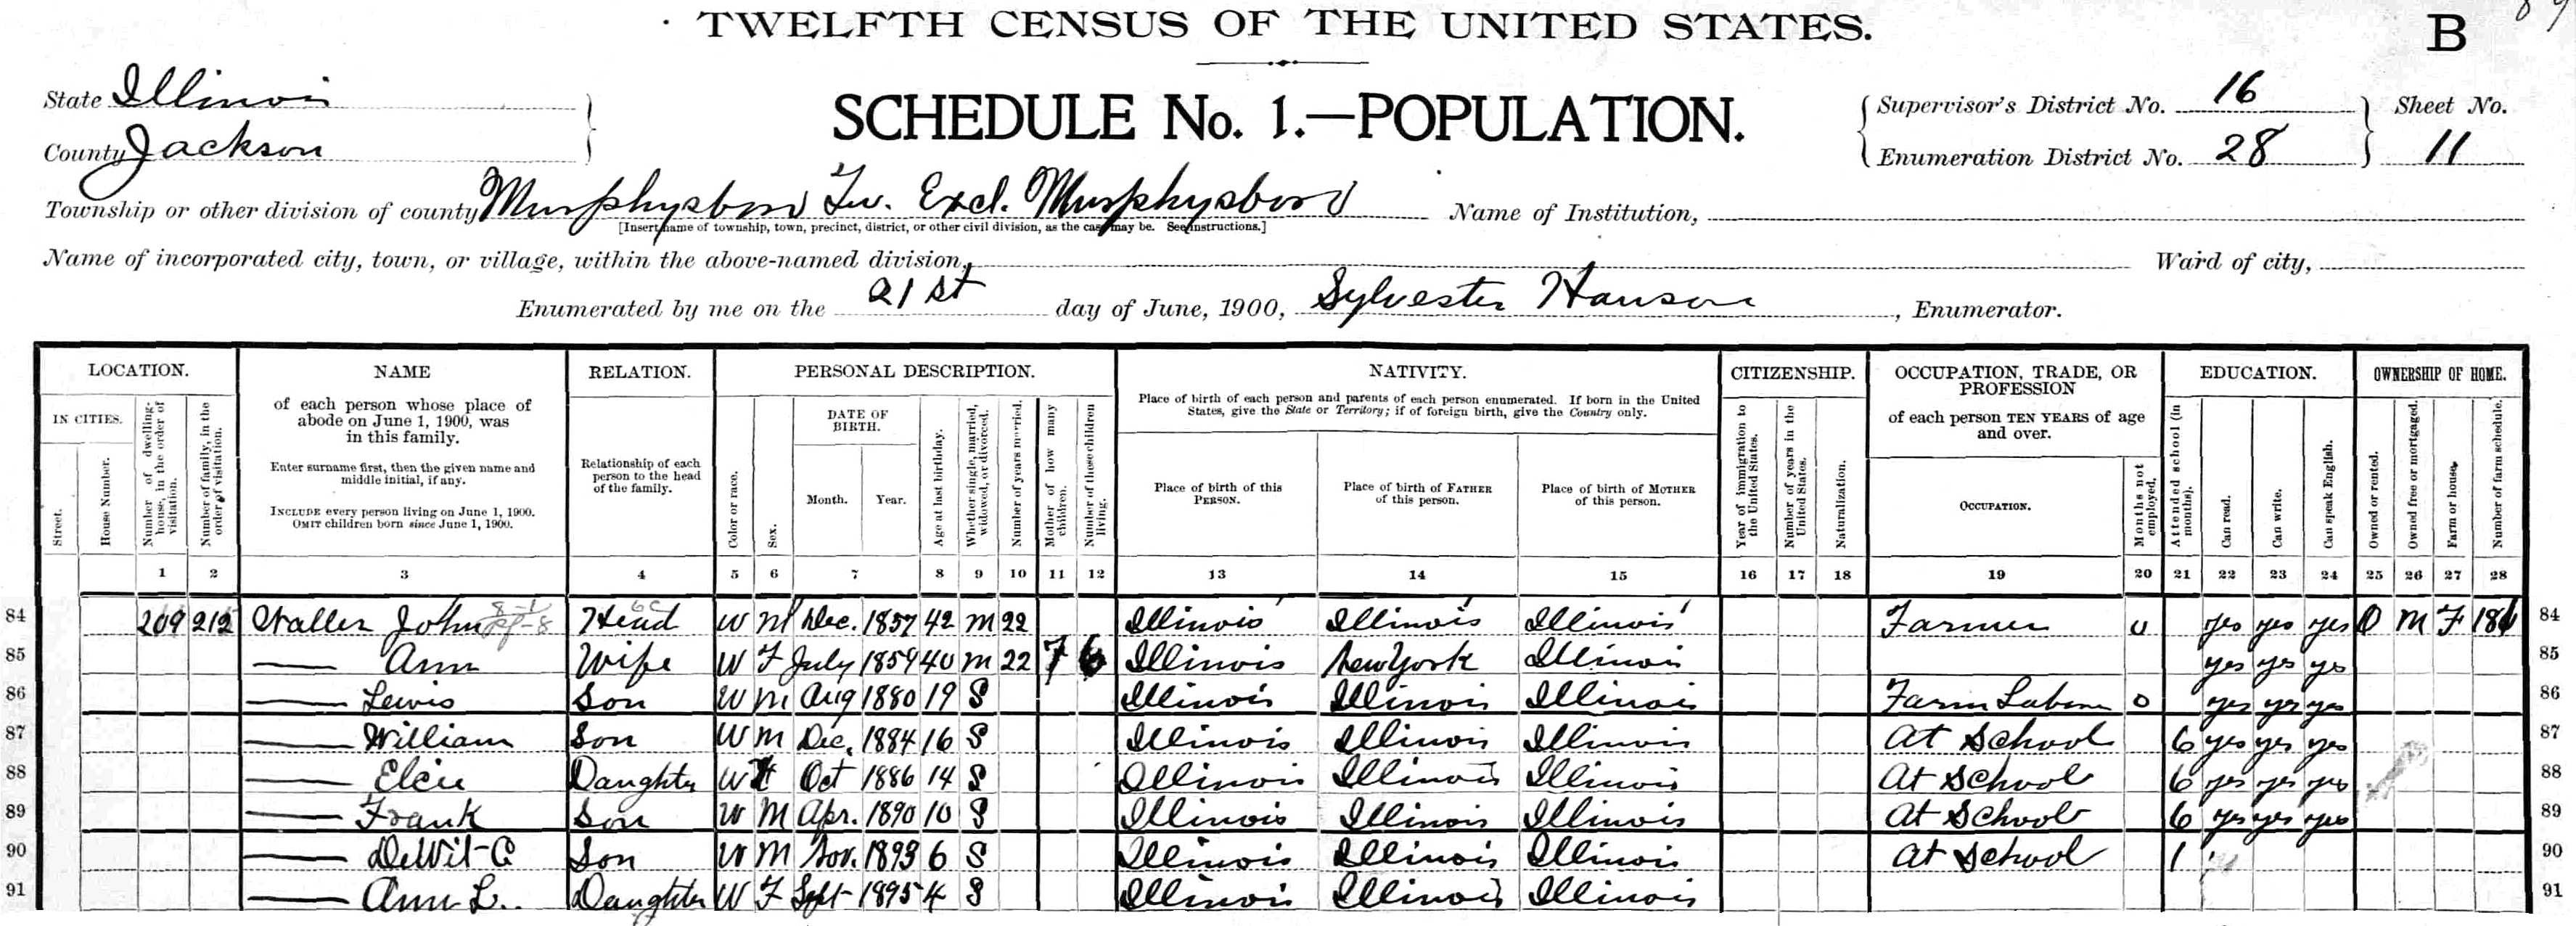 TWELFTH CENSUS OF THE UNITED STATES.
B
State Illinois
County Jackson
SCHEDULE No. 1.—POPULATION.
Supervisor's District No. 16
Enumeration District No. 28
Sheet No.
11
Township or other division of county Murphysboro Tw. Excl. Murphysboro
[Insert name of township, town, precinct, district, or other civil division, as the case may be. See instructions.]
Name of Institution,
Name of incorporated city, town, or village, within the above-named division,
Ward of city,
Enumerated by me on the 21st day of June, 1900, Sylvester Hanson, Enumerator.
LOCATION.
IN CITIES.
Street.
House Number.
Number of dwelling-house, in the order of visitation.
Number of family, in the order of visitation.
NAME
of each person whose place of
abode on June 1, 1900, was
in this family.
Enter surname first, then the given name and
middle initial, if any.
INCLUDE every person living on June 1, 1900.
OMIT children born since June 1, 1900.
RELATION.
Relationship of each
person to the head
of the family.
PERSONAL DESCRIPTION.
Color or race.
Sex.
DATE OF
BIRTH.
Month.
Year.
Age at last birthday.
Whether single, married, widowed, or divorced.
Number of years married.
Mother of how many children.
Number of these children living.
NATIVITY.
Place of birth of each person and parents of each person enumerated. If born in the United
States, give the State or Territory; if of foreign birth, give the Country only.
Place of birth of this
PERSON.
Place of birth of FATHER
of this person.
Place of birth of MOTHER
of this person.
CITIZENSHIP.
Year of immigration to the United States.
Number of years in the United States.
Naturalization.
OCCUPATION, TRADE, OR
PROFESSION
of each person TEN YEARS of age
and over.
OCCUPATION.
Months not employed.
EDUCATION.
Attended school (in months).
Can read.
Can write.
Can speak English.
OWNERSHIP OF HOME.
Owned or rented.
Owned free or mortgaged.
Farm or house.
Number of farm schedule.
1 2 3 4 5 6 7 8 9 10 11 12 13 14 15 16 17 18 19 20 21 22 23 24 25 26 27 28
84 209 212 Waller John Head W M Dec. 1857 42 M 22 Illinois Illinois Illinois Farmer 0 yes yes yes O M F 186 84
85 — Ann Wife W F July 1859 40 M 22 7 6 Illinois New York Illinois yes yes yes 85
86 — Lewis Son W M Aug 1880 19 S Illinois Illinois Illinois Farm Labor 0 yes yes yes 86
87 — William Son W M Dec. 1884 16 S Illinois Illinois Illinois At School 6 yes yes yes 87
88 — Elcie Daughter W F Oct 1886 14 S Illinois Illinois Illinois At School 6 yes yes yes 88
89 — Frank Son W M Apr. 1890 10 S Illinois Illinois Illinois At School 6 yes yes yes 89
90 — DeWit C Son W M Nov. 1893 6 S Illinois Illinois Illinois At School 1 90
91 — Ann L. Daughter W F Sept 1895 4 S Illinois Illinois Illinois 91